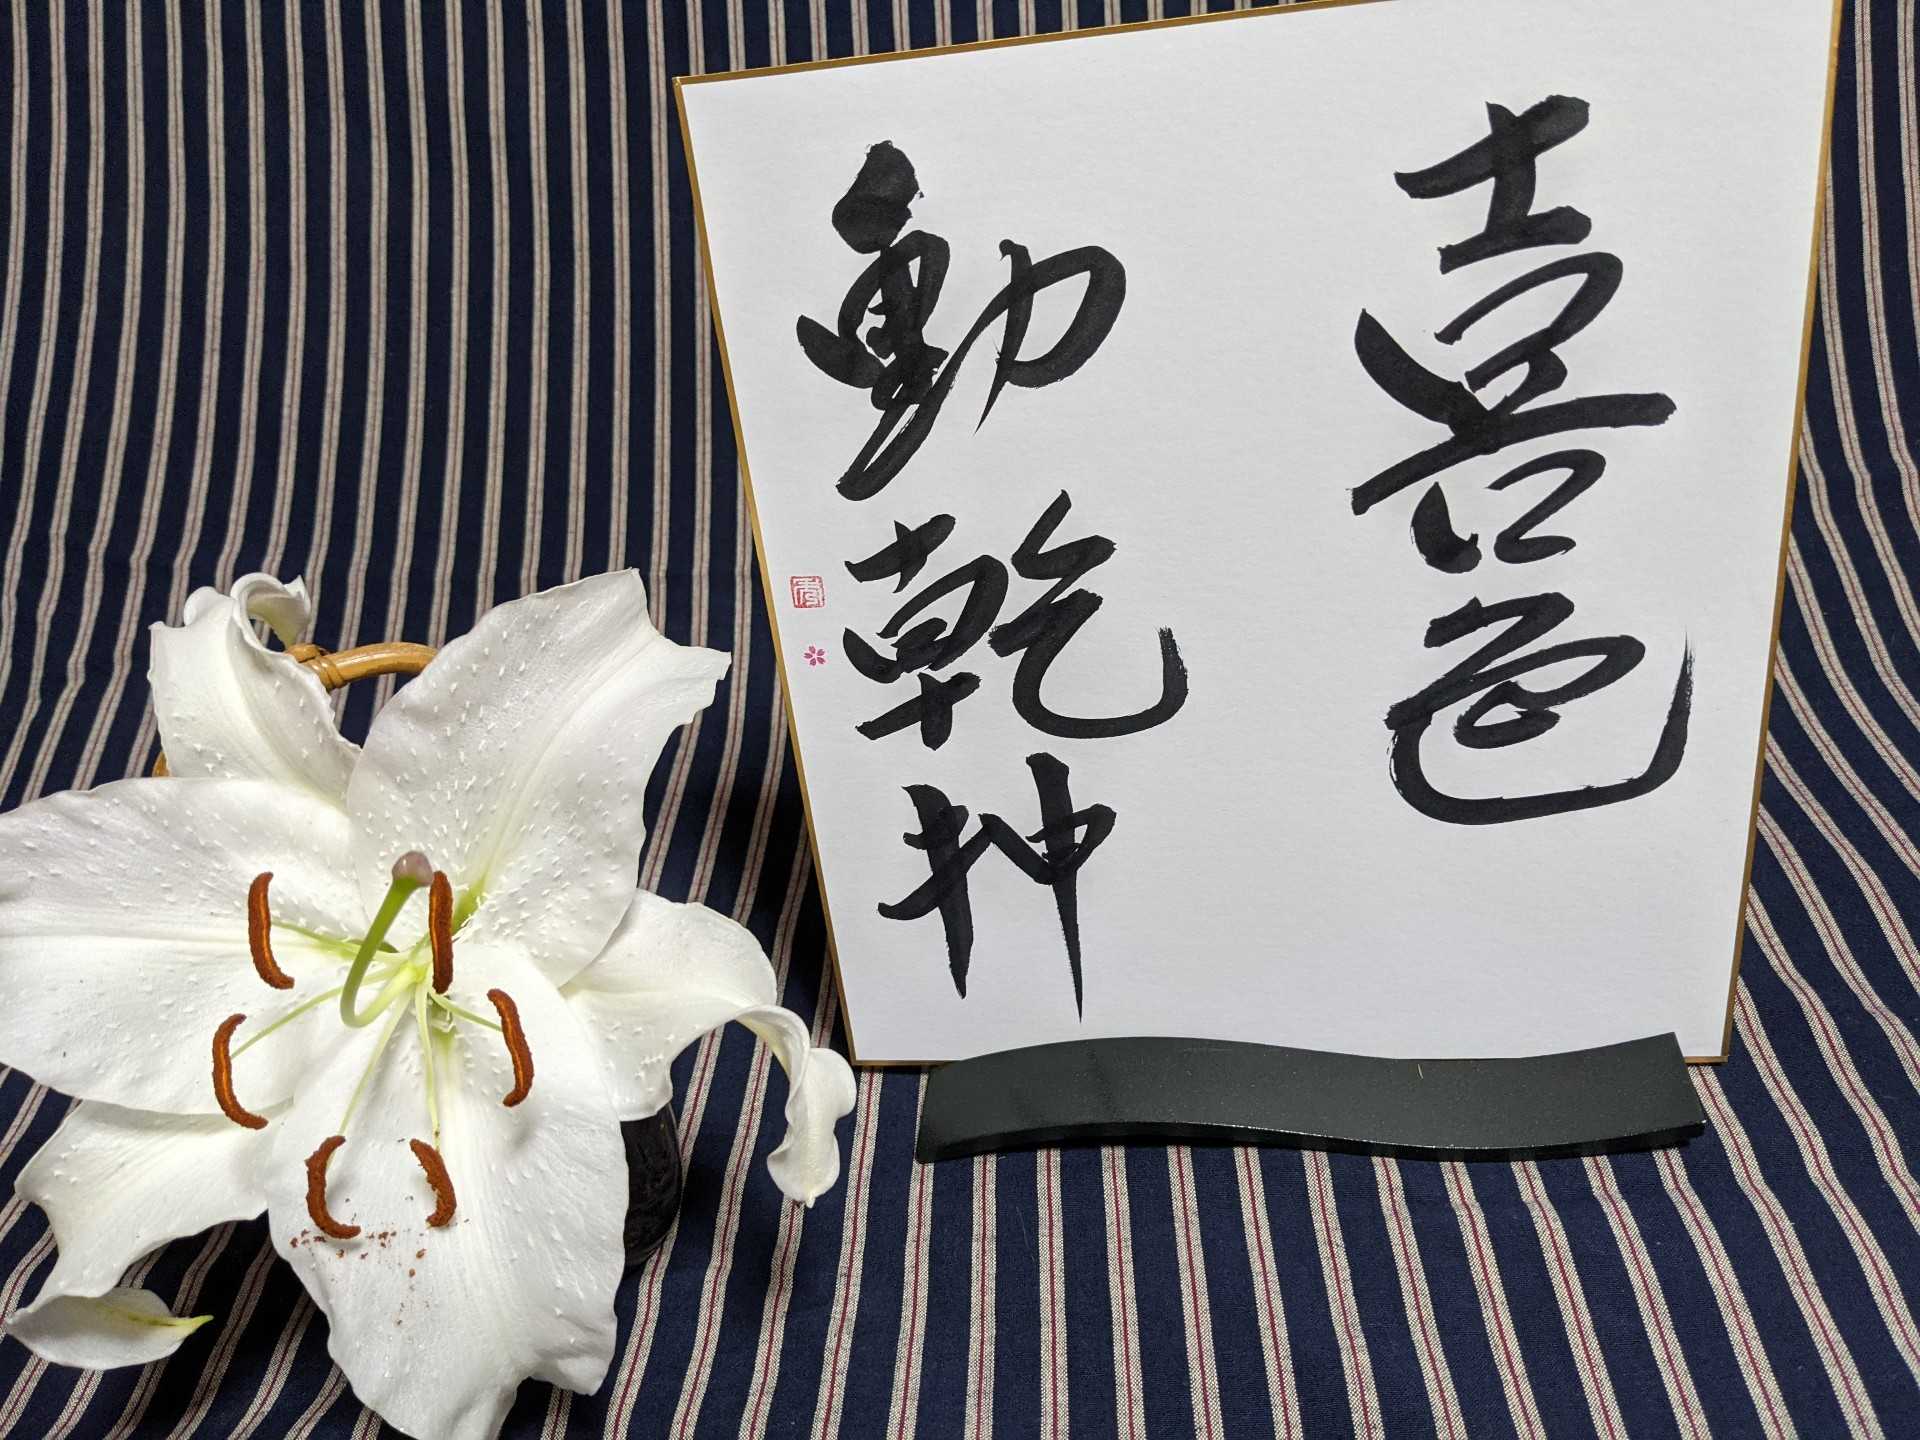 喜色
動乾坤